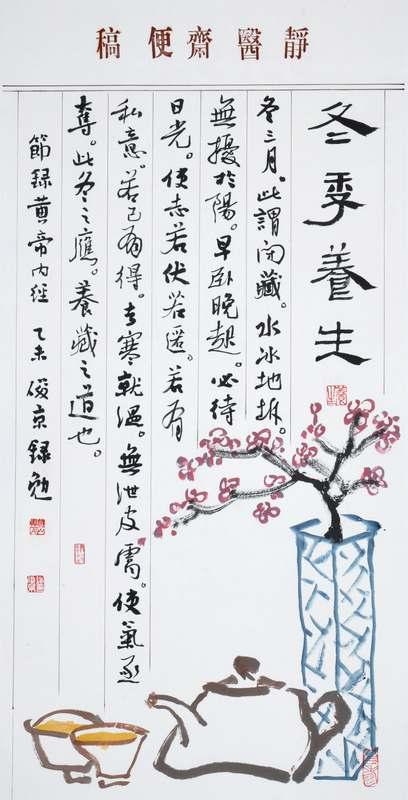 靜醫齋便稿
冬季養生
冬三月。此謂閉藏。水冰地坼。
無擾於陽。早卧晚起。必待
日光。使志若伏若匿。若有
私意。若已有得。去寒就溫。無泄皮膚。使氣亟
奪。此冬之應。養藏之道也。
節録黃帝內經 乙未 俊京録勉